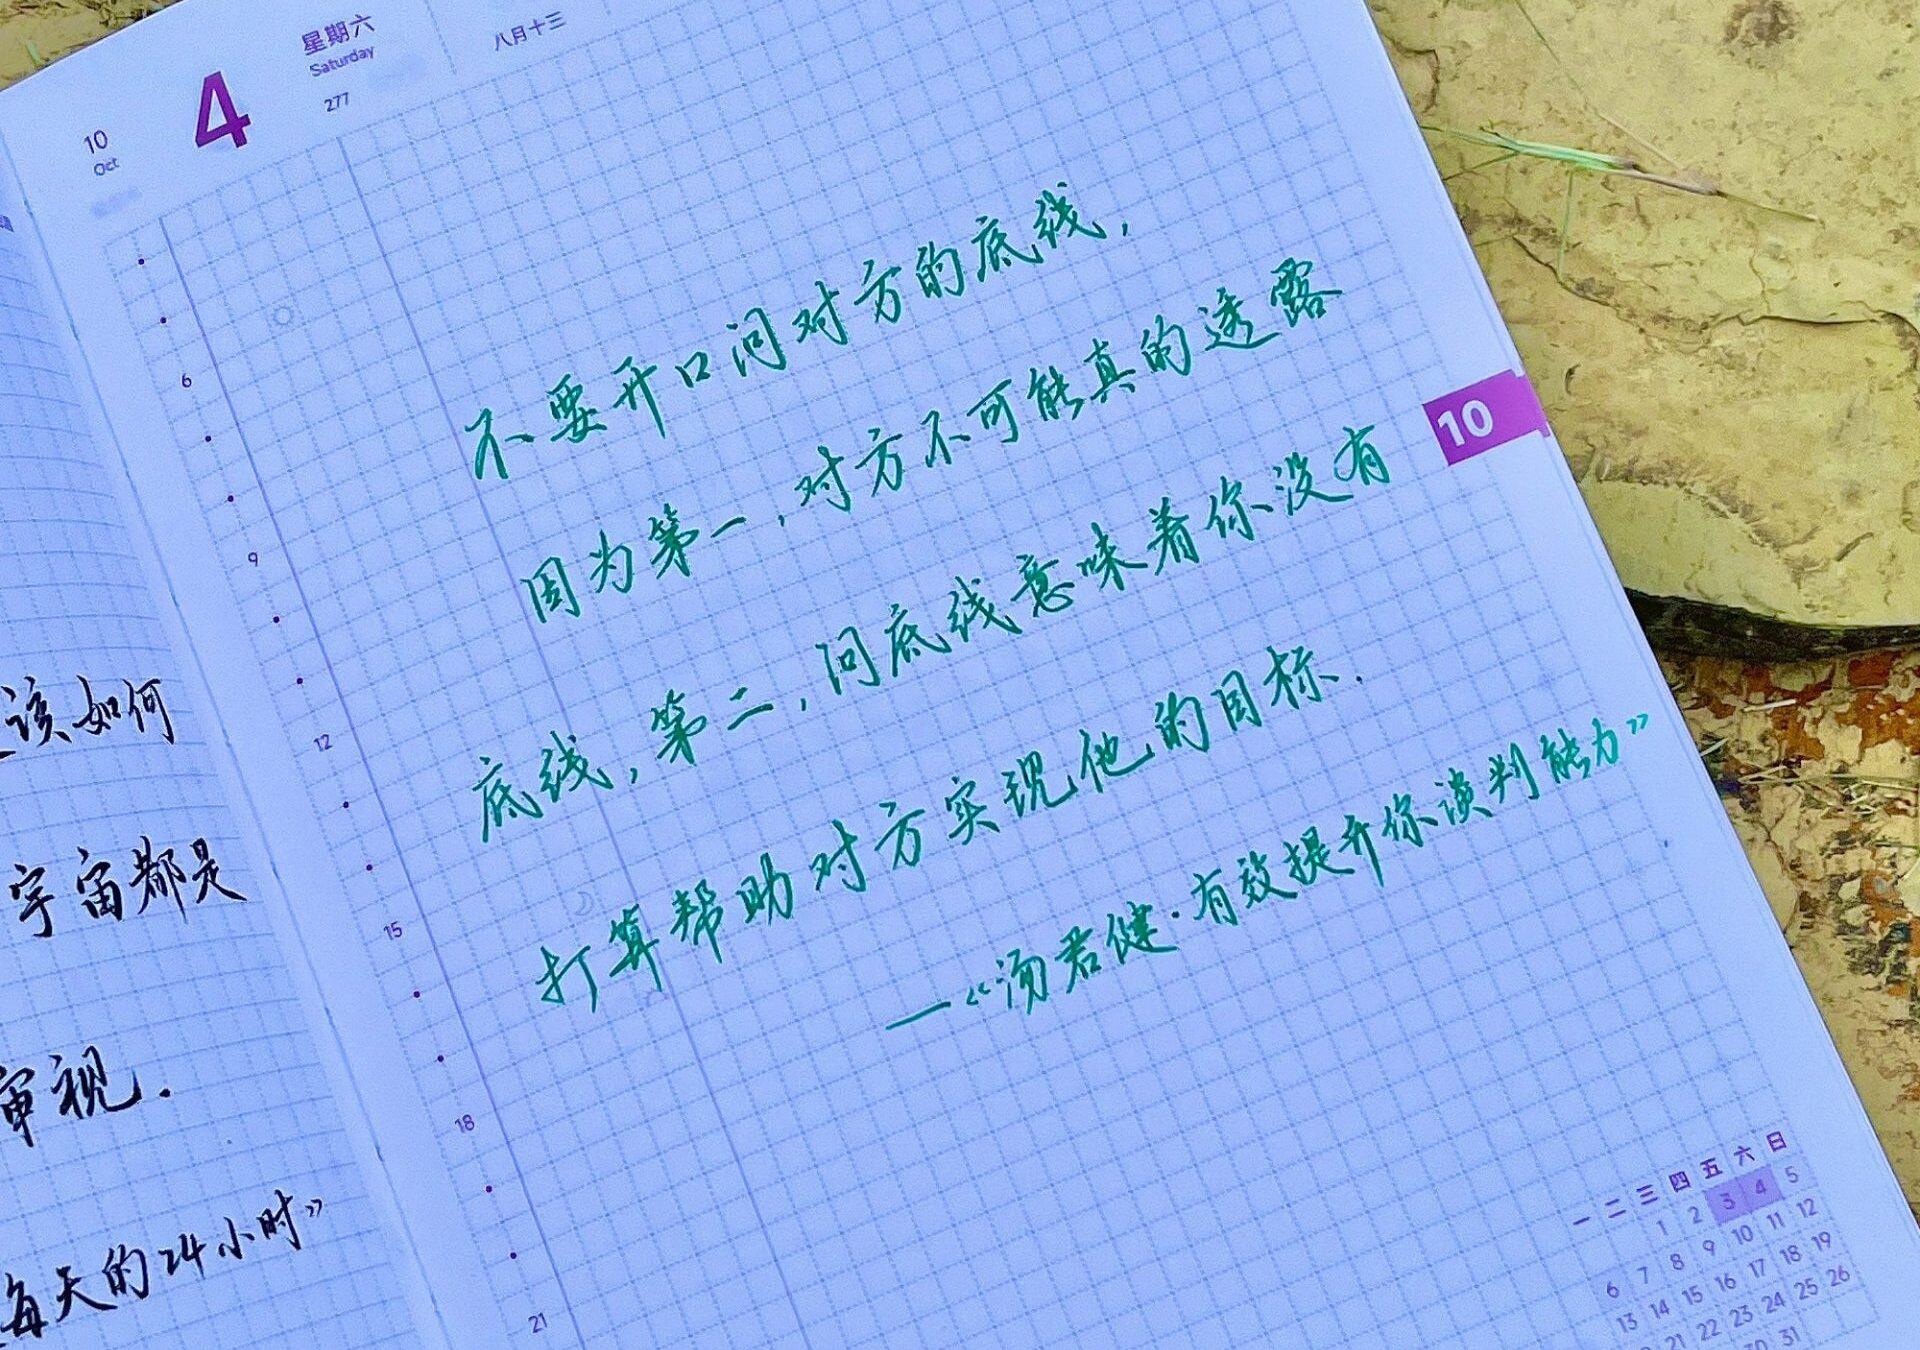 该如何
宇宙都是
审视.
每天的24小时》
10
Oct
4
星期六
Saturday
277
八月十三
不要开口问对方的底线,
因为第一,对方不可能真的透露
底线,第二,问底线意味着你没有
打算帮助对方实现他的目标.
—《汤君健·有效提升你谈判能力》
6
9
12
15
18
21
10
一 二 三 四 五 六 日
1 2 3 4 5
6 7 8 9 10 11 12
13 14 15 16 17 18 19
21 22 23 24 25 26
30 31